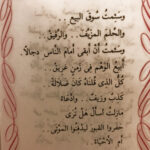 وسئمتُ سُوقَ البيعِ ..
والحُلمِ المزيّفِ .. والرقيقْ
وسئمتُ أنْ أبقى أمامَ الناسِ دجّالاً..
أبيعُ الوهمَ في زمنٍ غريقْ ..
كُلُّ الذي قُلناهُ كانَ ضَلالةً
كذبٌ وزيفٌ.. وادّعاءْ
مازلتُ أسألُ هل تُرى
حفروا القبورَ ليدفنوا الموْتى
أم الأحياءْ